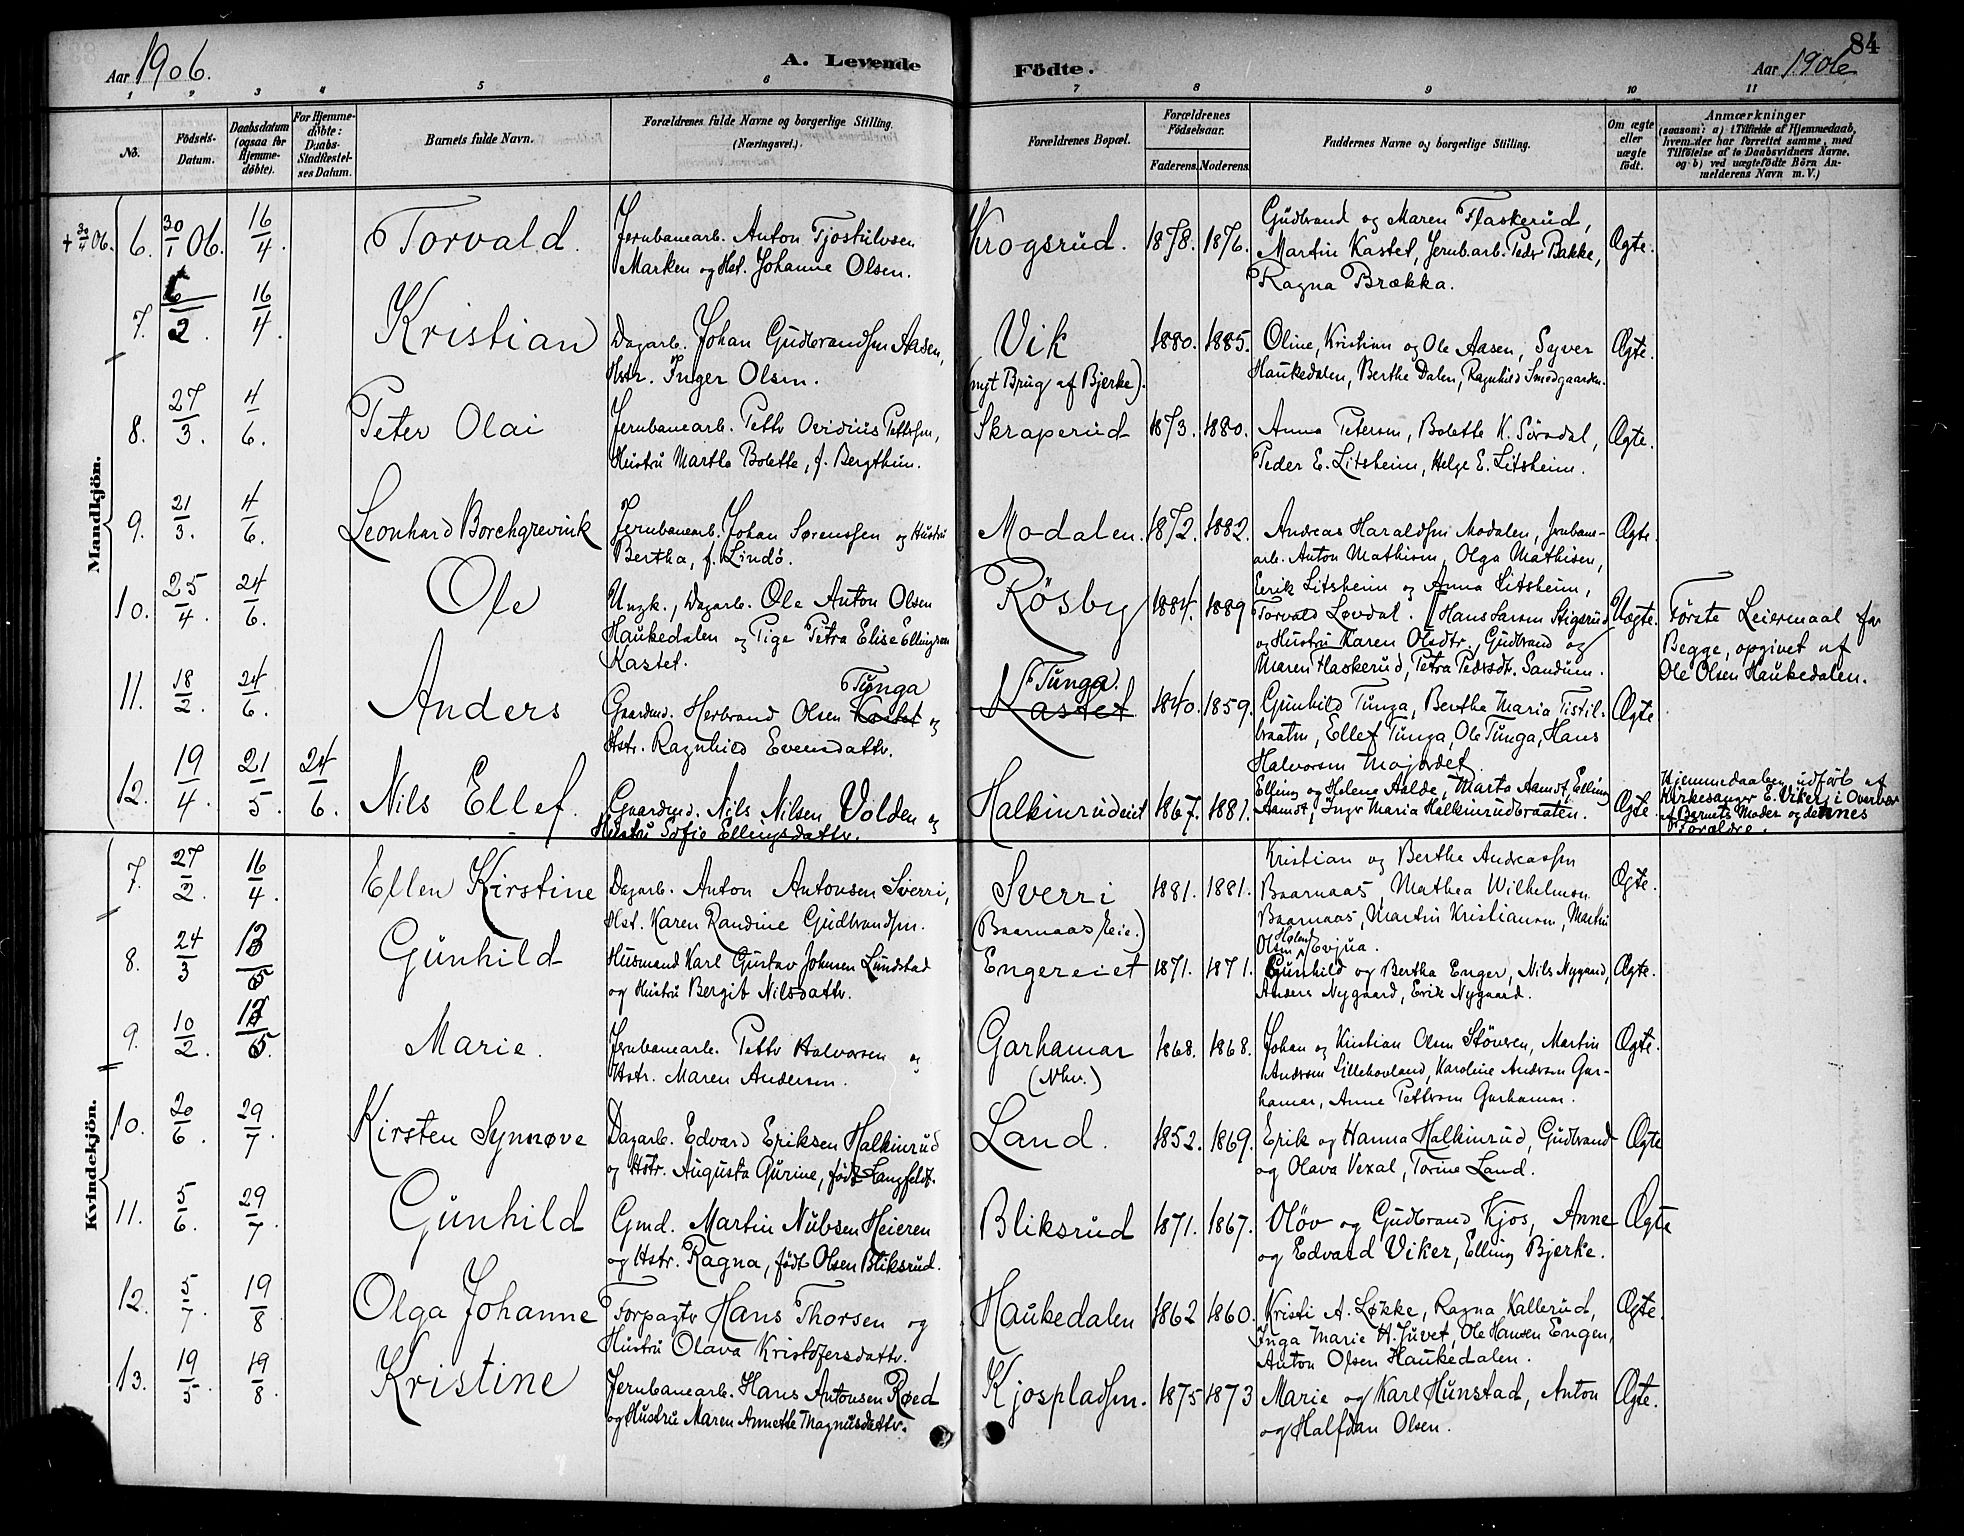 84
Aar 1906.
A. Levende
Födte.
Aar 1906
1 2 3 4 5 6 7 8 9 10 11
No.
Födsels-Datum.
Daabsdatum (ogsaa for Hjemme-döbte).
For Hjemme-döbte: Daabs-Stadfæstel-ses Datum.
Barnets fulde Navn.
Forældrenes fulde Navne og borgerlige Stilling.
(Næringsvei.)
Forældrenes Bopæl.
Forældrenes Födselsaar.
Faderens. Moderens.
Faddernes Navne og borgerlige Stilling.
Om ægte eller uægte födt.
Anmærkninger
(saasom: a) i Tilfælde af Hjemmedaab,
hvem der har forrettet samme, med
Tilföielse af to Daabsvidners Navne,
og b) ved uægtefödte Börn An-
melderens Navn m. V.)
Mandkjön.
+ 30/4 06. 6. 30/1 06. 16/4. Torvald. Jernbanearb. Anton Tjostulvsen
Marken og Hst. Johanne Olsen.
Krogsrud. 1878. 1876. Gudbrand og Maren Flaskerud,
Martin Kastet, Jernb.arb. Peder Bakke,
Ragna Brækka.
Ægte.
7. 6/2. 16/4. Kristian Dagarb. Johan Gudbrandsen Aasen,
Hstr. Inger Olsen.
Vik
(nyt Brug af Bjerke).
1880. 1885. Oline, Kristian og Ole Aasen, Syver
Haukedalen, Berthe Dalen, Ragnhild Smedgaarden.
Ægte.
8. 27/3. 4/6. Peter Olai Jernbanearb. Petter Ovidius Pettersen,
Hustru Marthe Bolette, f. Bergthun.
Skraperud 1873. 1880. Anna Petersen, Bolette K. Sörsdal,
Peder E. Litsheim, Helge E. Litsheim.
Ægte.
9. 21/3. 4/6. Leonhard Borchgrevink Jernbanearb. Johan Sørenssen og Hustru
Bertha, f. Lindö.
Modalen. 1872. 1882. Andreas Haraldsen Modalen, Jernbane-
arb. Anton Mathisen, Olga Mathisen,
Erik Litsheim og Anna Litsheim,
Torvald Løvdal.
Ægte.
10. 25/4. 24/6. Ole Ungk., Dagarb. Ole Anton Olsen
Haukedalen og Pige Petra Elise Ellingsen
Kastet.
Rösby 1884. 1889 Hans Larsen Stigsrud
og Hustru Karen Olsdtr., Gudbrand og
Maren Flaskerud, Petra Pedersdt. Sandum.
Uægte. Første Leiermaal for
Begge, opgivet af
Ole Olsen Haukedalen.
11. 18/2. 24/6. Anders Gaardmd. Herbrand Olsen Kastet Tunga og
Hstr. Ragnhild Evensdattr.
Kastet Tunga. 1840. 1859. Gunhild Tunga, Berthe Maria Tistil-
braaten, Ellef Tunga, Ole Tunga, Hans
Halvorsen Mojordet.
Ægte
12. 19/4. 21/5. 24/6. Nils Ellef. Gaardmd. Nils Nilsen Volden og
Hustru Sofie Ellingsdattr.
Halkinrudeiet 1867. 1881. Elling og Helene Aalde, Marta Aamot, Elling
Aamot, Inger Maria Halkinrudbraaten.
Ægte. Hjemmedaaben udført af
Kirkesanger E. Viker i Overvær
af Barnets Moder og dennes
Forældre.
Kvindekjön.
7. 27/2. 16/4. Ellen Kirstine Dagarb. Anton Antonsen Sverri,
Hst. Karen Randine Gudbrandsen.
Sverri
(Baarnaas Eie.)
1881. 1881. Kristian og Berthe Andreassen
Baarnaas, Mathea Wilhelmsen
Baarnaas, Martin Kristiansen, Martin
Olsen Holen Evjua.
Ægte.
8. 24/3 13/5 Gunhild Husmand Karl Gustav Johnsen Lundstad
og Hustru Bergit Nilsdattr.
Engereiet 1871. 1871. Gunhild og Bertha Enger, Nils Nygaard,
Anders Nygaard, Erik Nygaard.
Ægte.
9. 10/2. 13/5. Marie. Jernbanearb. Petter Halvorsen og
Hstr. Maren Andersen.
Garhamar
(Nhv.)
1868. 1868. Johan og Kristian Olsen Stövern, Martin
Andersen Lillehovland, Karoline Andersen Gar-
hamar, Anne Pettersen Garhamar.
Ægte.
10. 20/6. 29/7. Kirsten Synnøve Dagarb. Edvard Eriksen Halkinrud
og Hstr. Augusta Gurine, født Langfeldt.
Land. 1852. 1869. Erik og Hanna Halkinrud, Gudbrand
og Olava Vexal, Torine Land.
Ægte
11. 5/6. 29/7. Gunhild Gmd. Martin Nubsen Heieren
og Hstr. Ragna, født Olsen Bliksrud.
Bliksrud 1871. 1867. Olöv og Gudbrand Kjos, Anne
og Edvard Viker, Elling Bjerke.
Ægte
12. 5/7. 19/8 Olga Johanne Forpagter Hans Thorsen og
Hustru Olava Kristofersdattr.
Haukedalen 1862 1860. Kristi A. Løkke, Ragna Kallerud,
Inga Marie H. Juvet, Ole Hansen Engen,
Anton Olsen Haukedalen.
Ægte.
13. 19/5 19/8 Kristine Jernbanearb. Hans Antonsen Røed
og Hustru Maren Annette Magnusdattr.
Kjospladsen. 1875 1873 Marie og Karl Hunstad, Anton
og Halfdan Olsen.
Ægte.